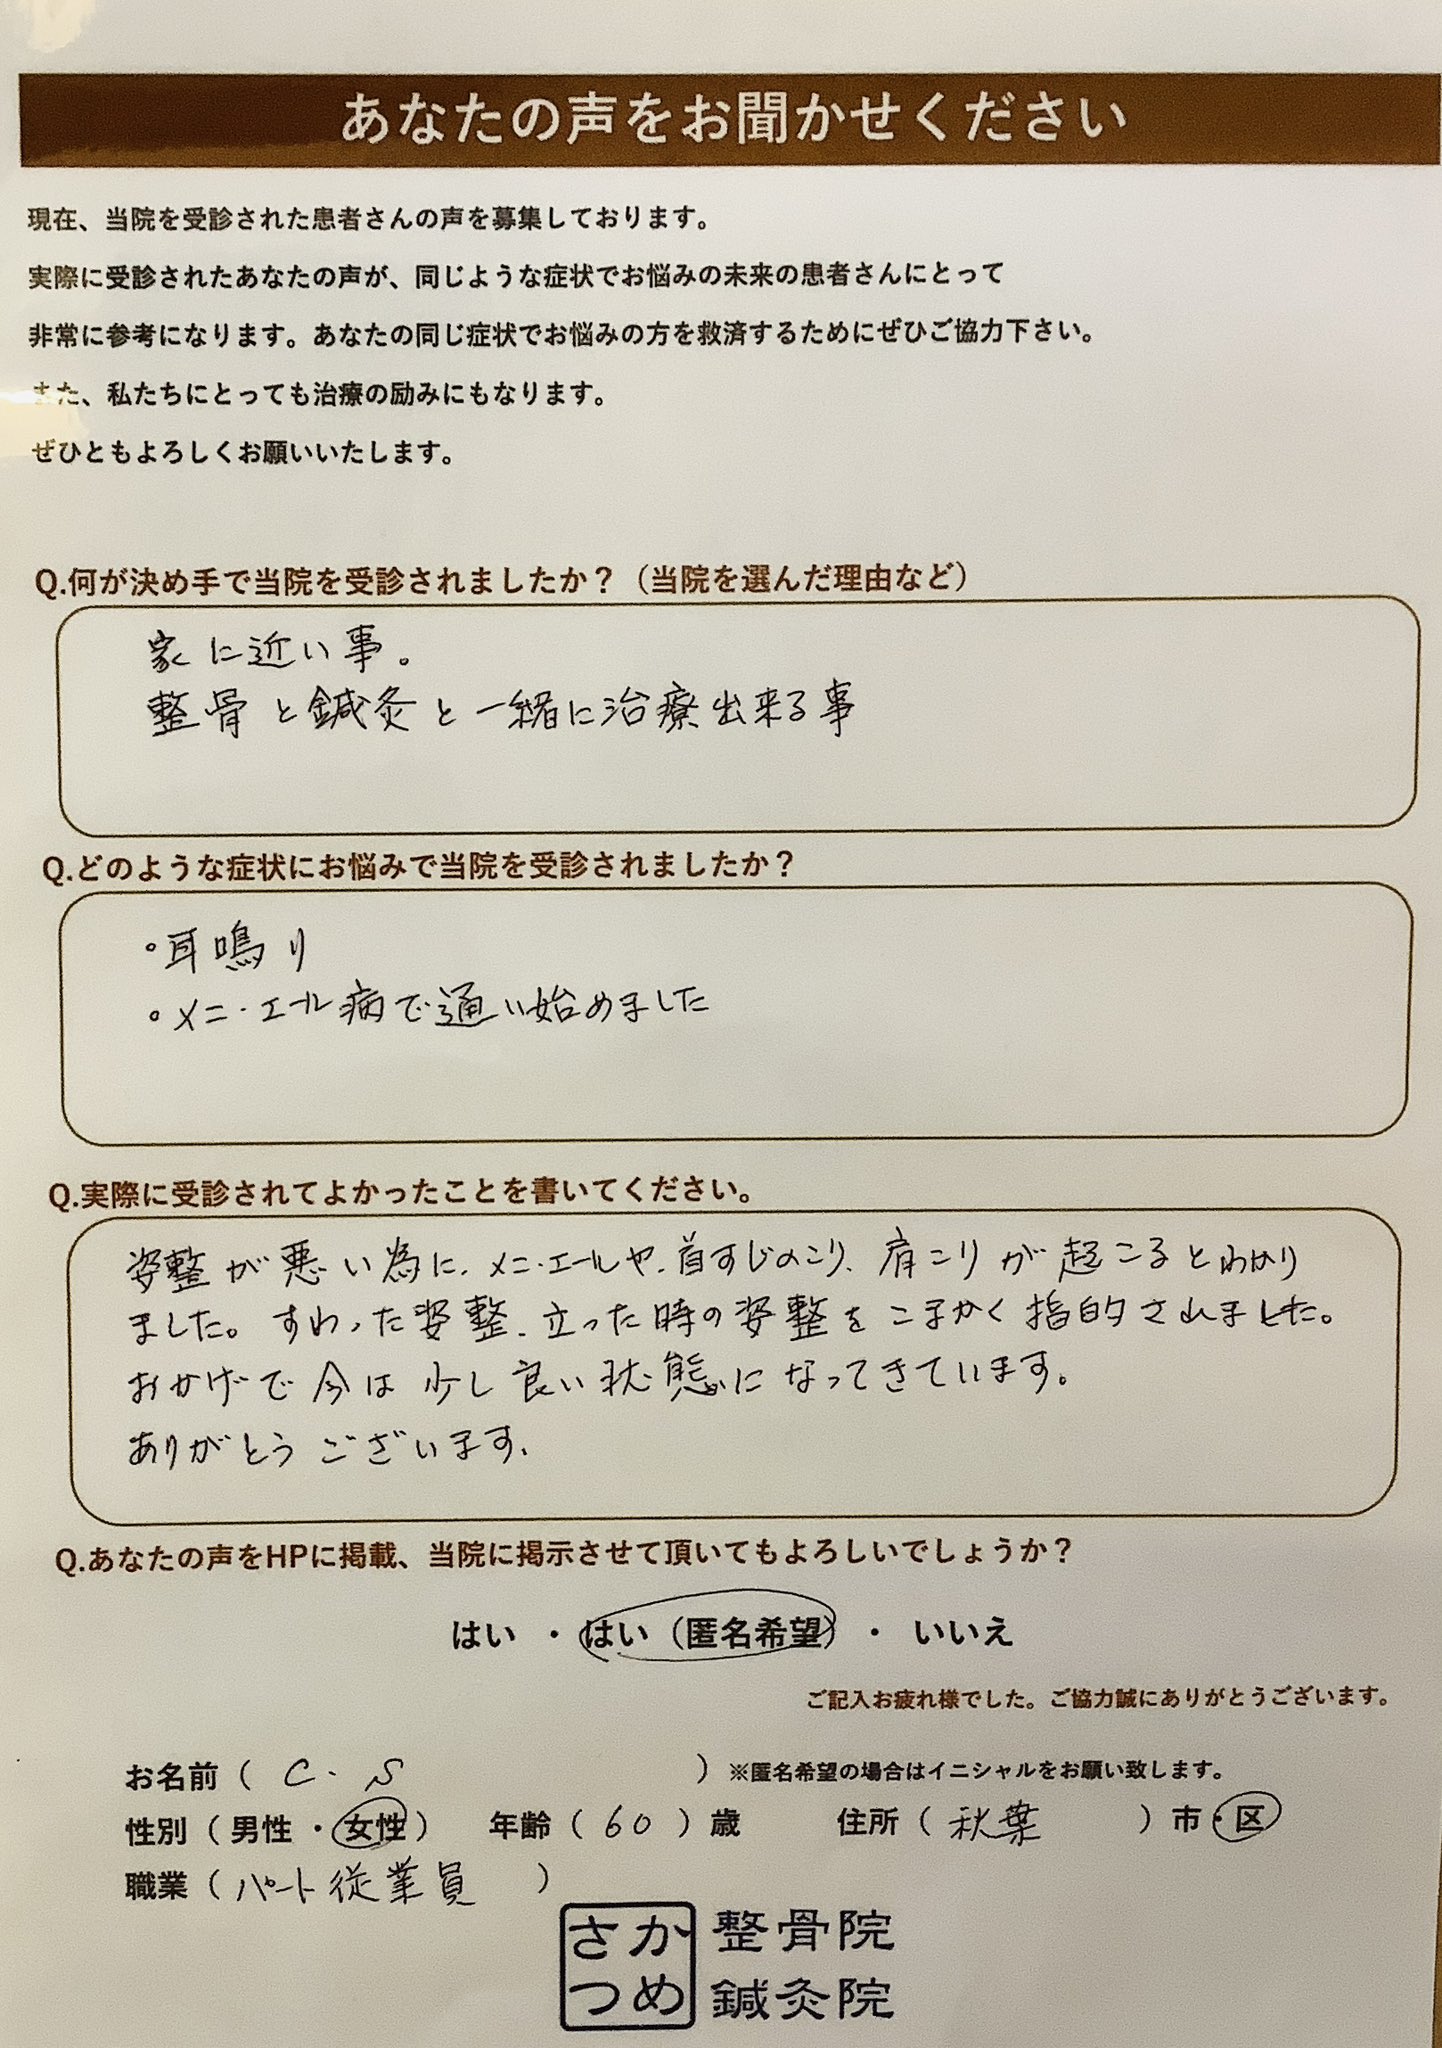 あなたの声をお聞かせください
現在、当院を受診された患者さんの声を募集しております。
実際に受診されたあなたの声が、同じような症状でお悩みの未来の患者さんにとって
非常に参考になります。あなたの同じ症状でお悩みの方を救済するためにぜひご協力下さい。
また、私たちにとっても治療の励みにもなります。
ぜひともよろしくお願いいたします。
Q.何が決め手で当院を受診されましたか？（当院を選んだ理由など）
家に近い事。
整骨と鍼灸と一緒に治療出来る事
Q.どのような症状にお悩みで当院を受診されましたか？
・耳鳴り
・メニ・エール病で通い始めました
Q.実際に受診されてよかったことを書いてください。
姿整が悪い為に、メニ・エールや、首すじのこり、肩こりが起こるとわかり
ました。すわった姿整、立った時の姿整をこまかく指的されました。
おかげで今は少し良い状態になってきています。
ありがとうございます。
Q.あなたの声をHPに掲載、当院に掲示させて頂いてもよろしいでしょうか？
はい ・ はい（匿名希望） ・ いいえ
ご記入お疲れ様でした。ご協力誠にありがとうございます。
お名前（ C・S ）※匿名希望の場合はイニシャルをお願い致します。
性別（男性・女性） 年齢（60）歳 住所（秋葉 ）市・区
職業（パート従業員 ）
さか 整骨院
つめ 鍼灸院